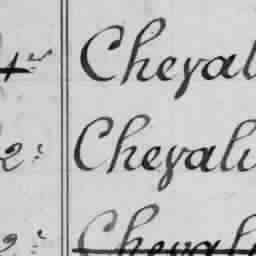 1er Cheval
2e Cheval
2e Cheval